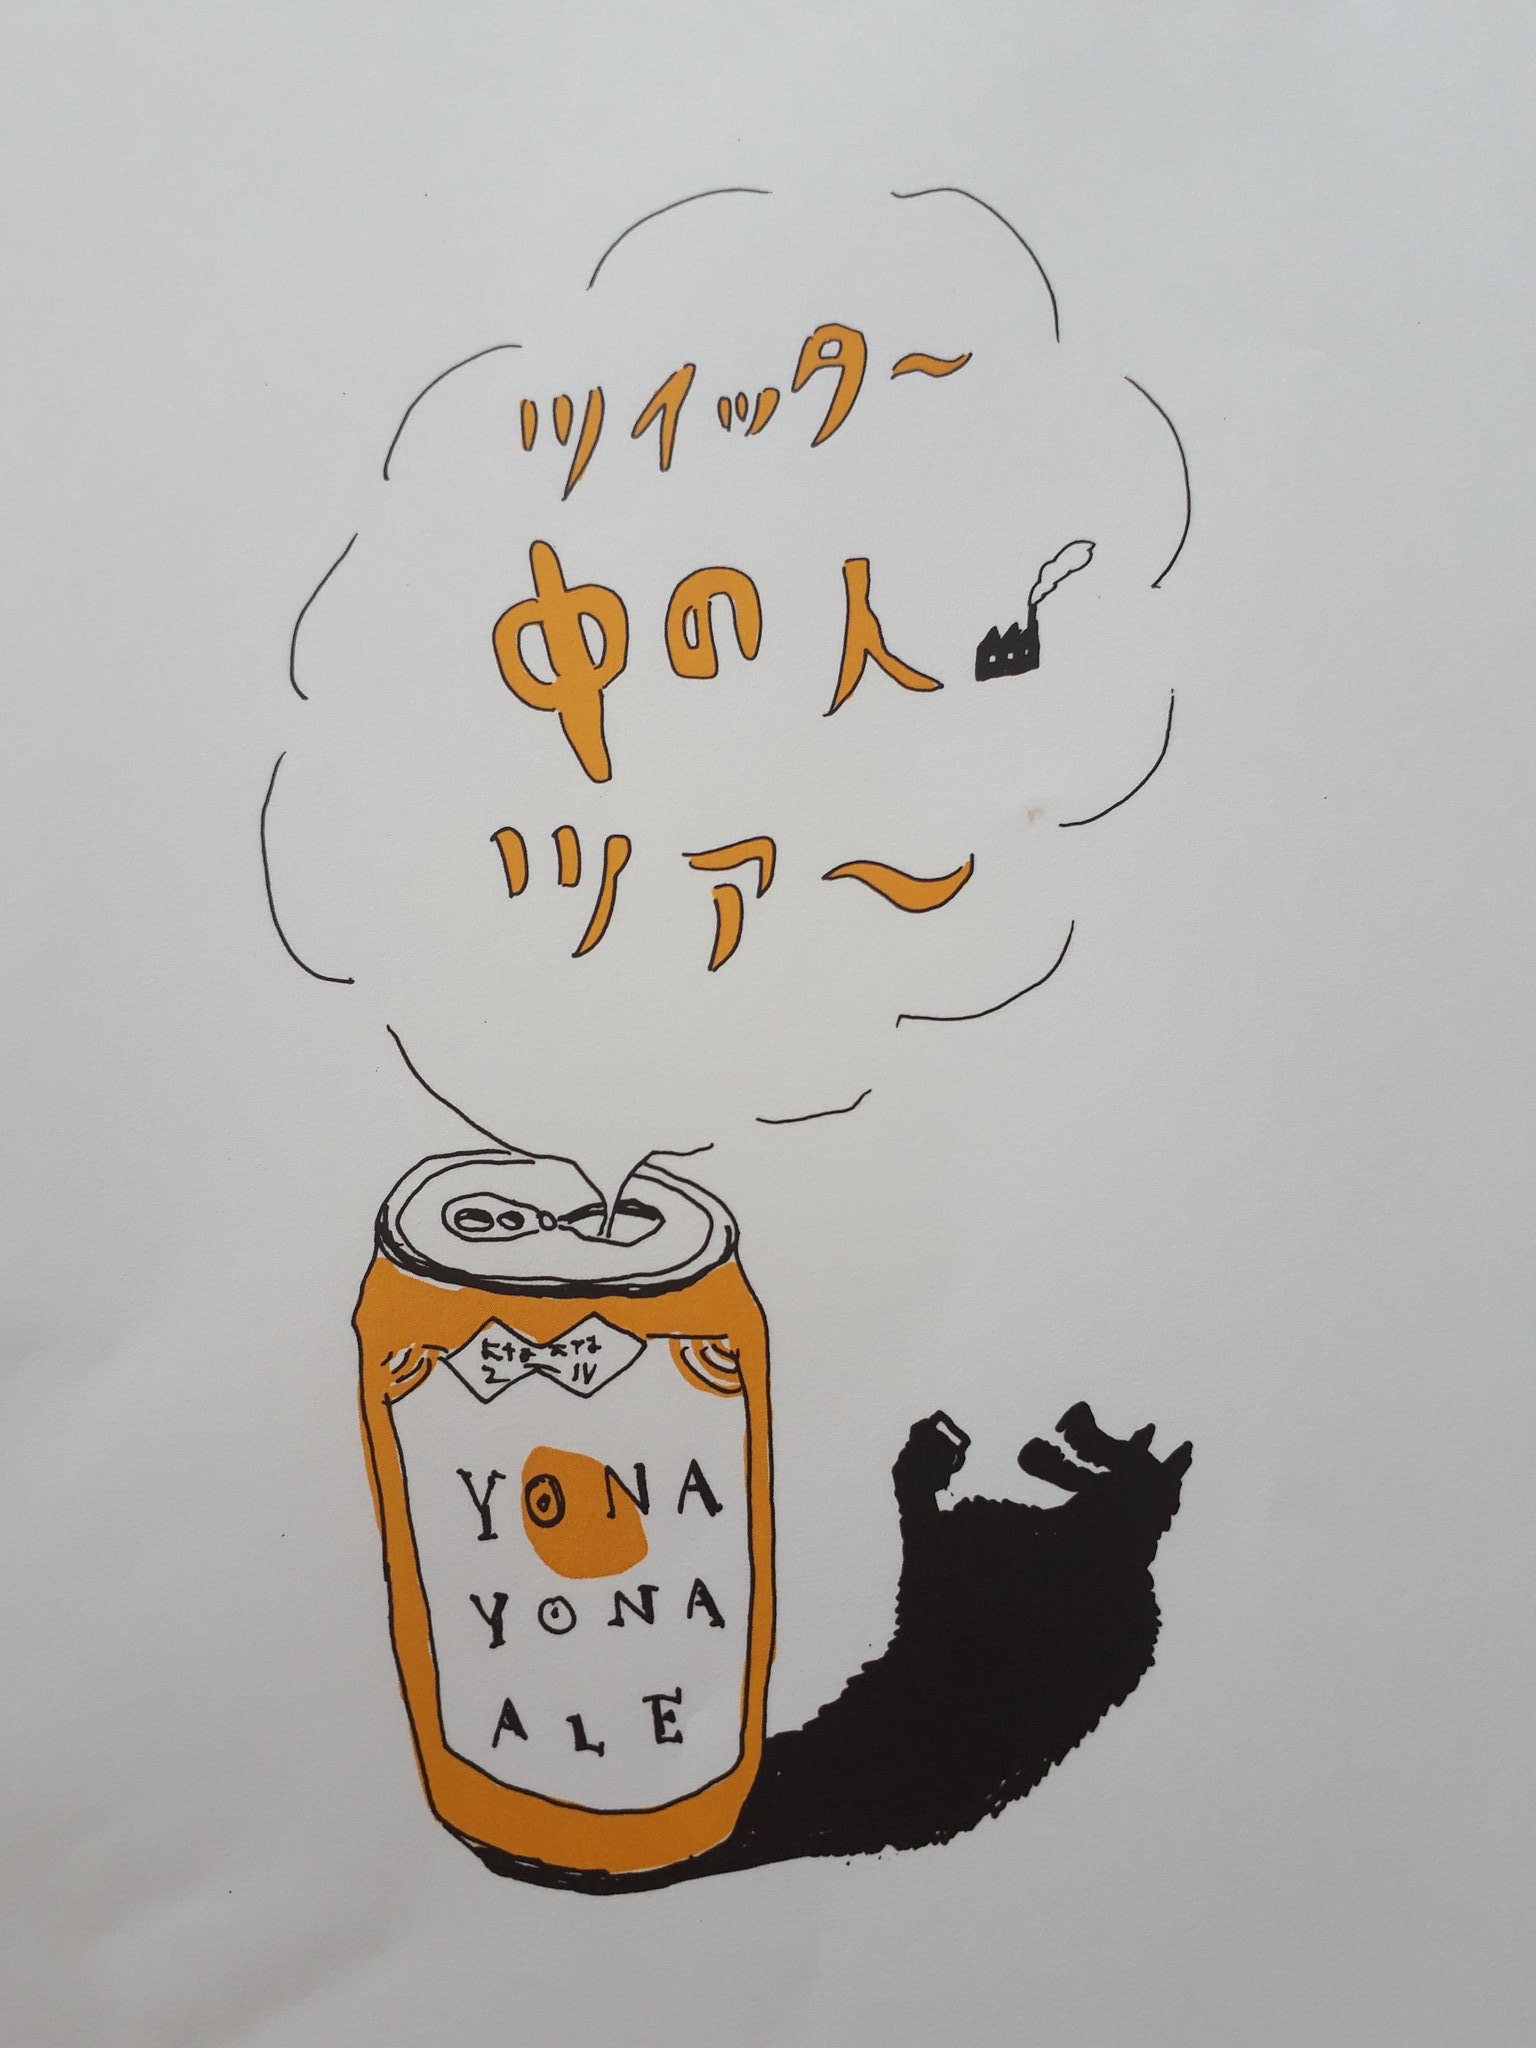 ツイッター
中の人
ツアー
よなよな
エール
YONA
YONA
ALE